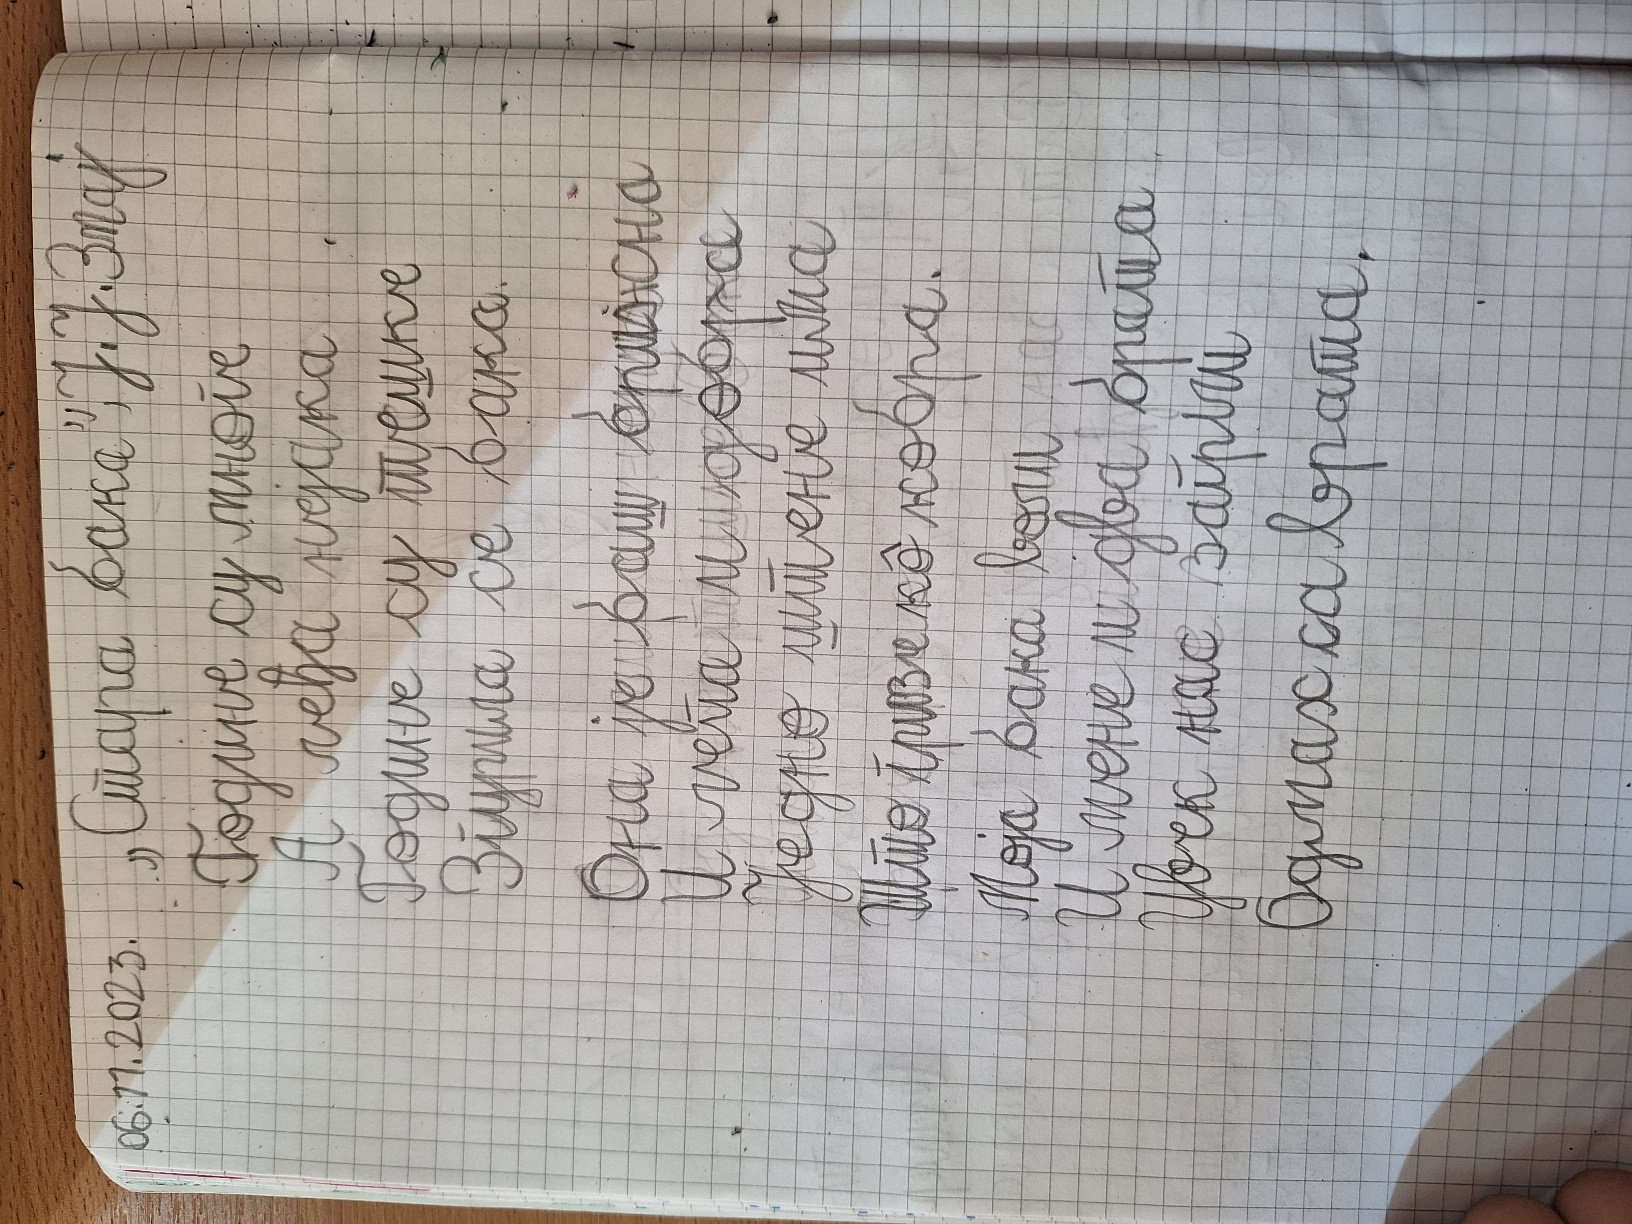 06.11.2023. „Стара бака", Ј.Ј.Змај
Године су многе
А леђа нејака
Године су тешке
Згурила се бака.
Она је баш брижна
И лепа и добра
Једно штене има
Што гризе кô кобра.
Моја бака воли
И мене и два брата
Увек нас загрли
Одмах са врата.